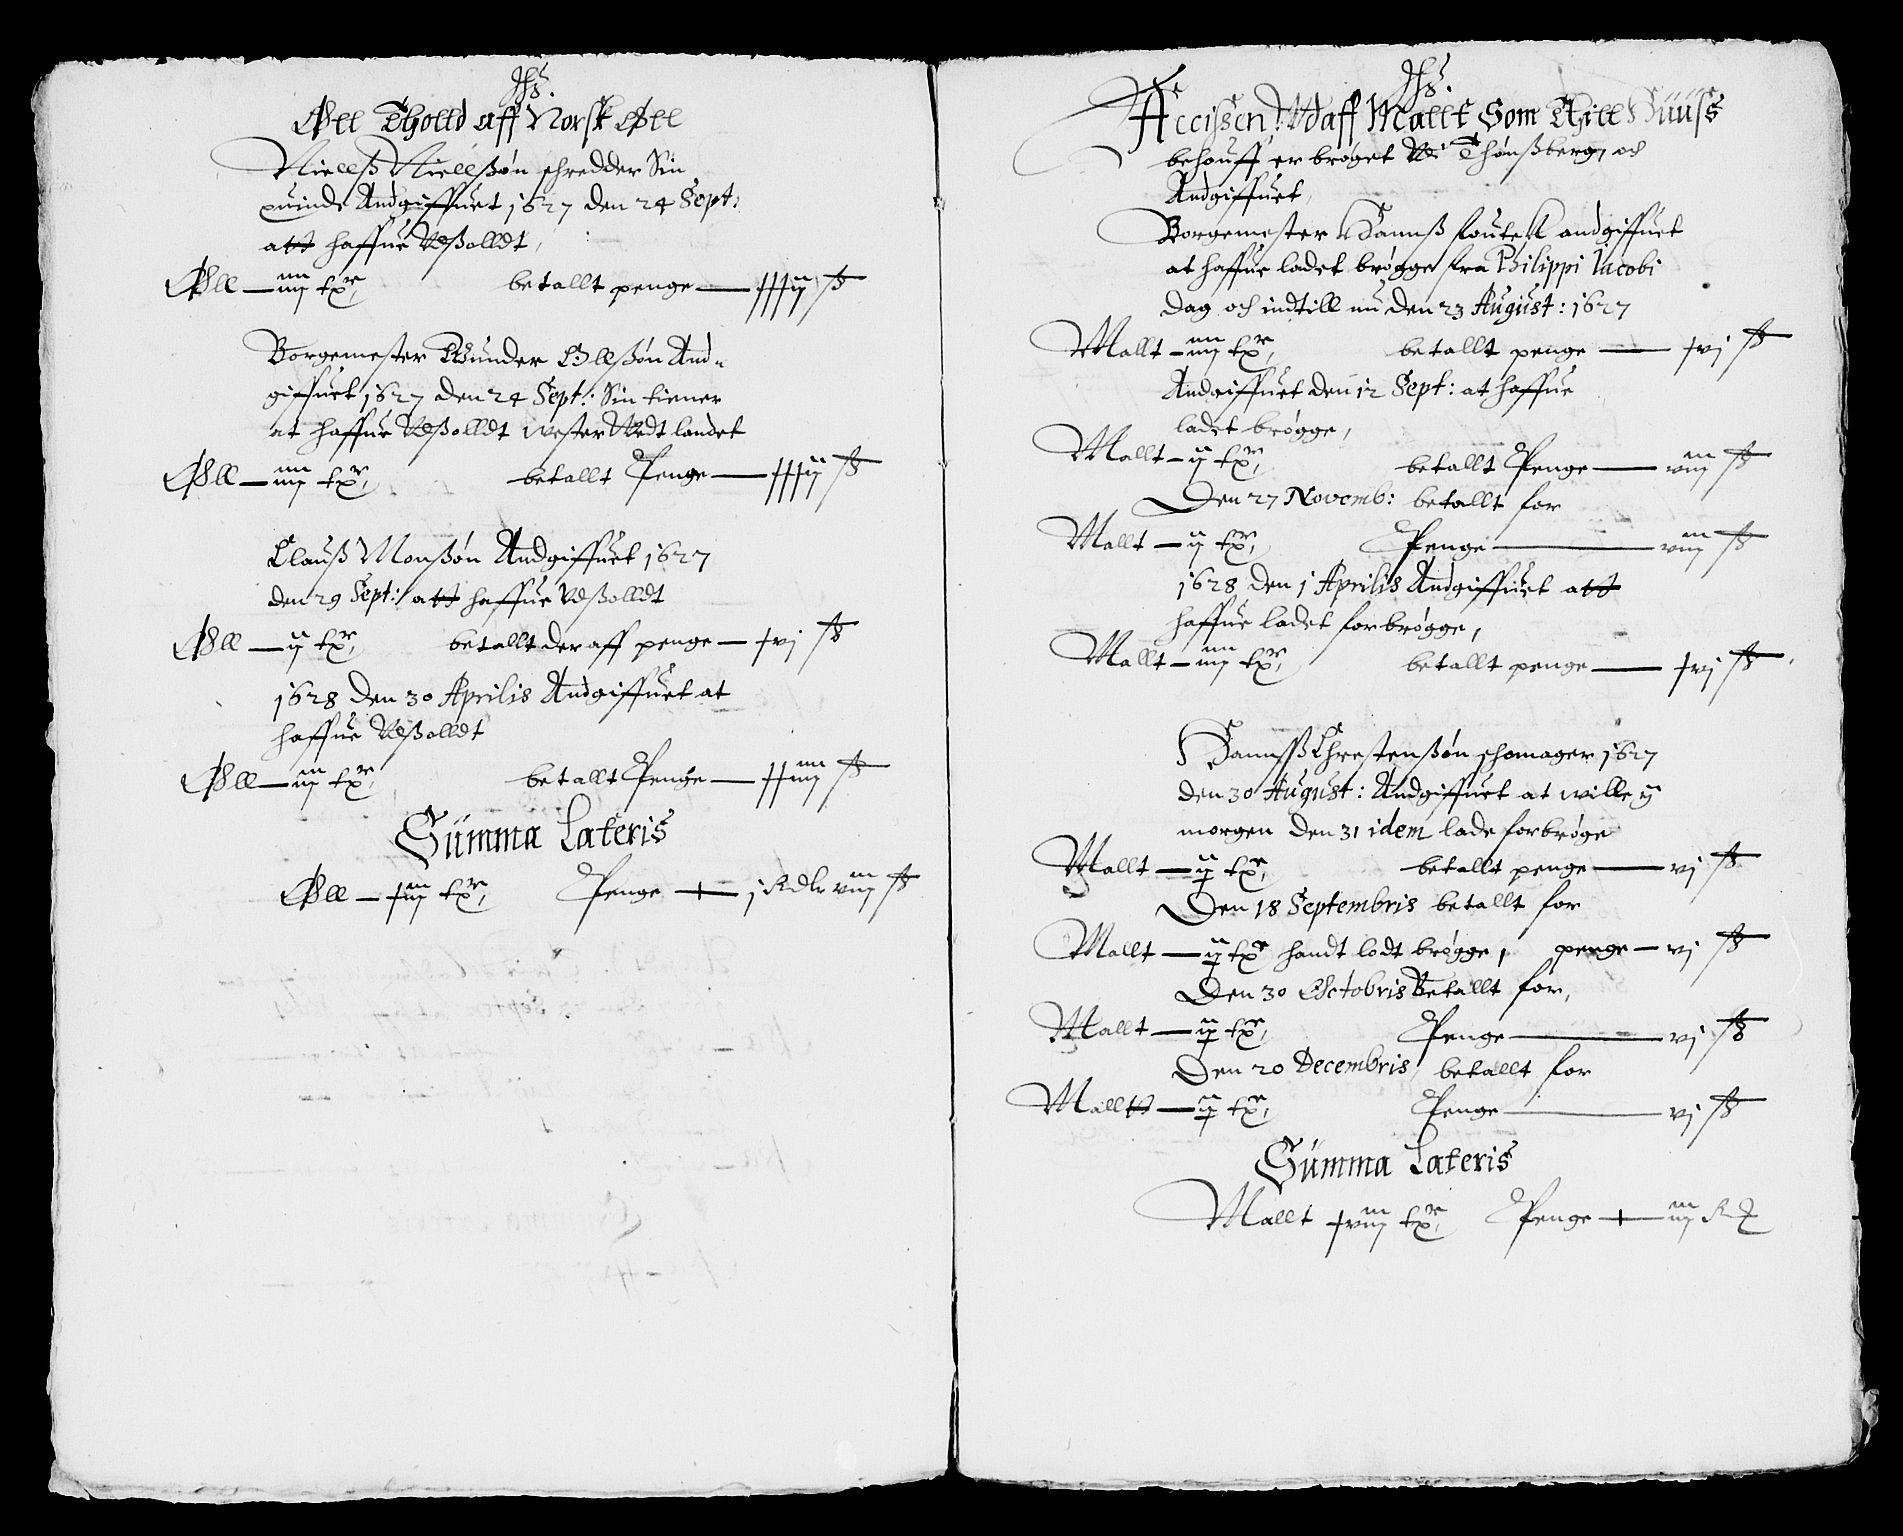 Jhs.
Øll Tholld aff Norsk Øll
Niellß Niellßøn schredder Sin
quinde Andgiffuet 1627 den 24 Sept:
att haffue Vdßolldt,
Øll — iiij tꝛ, betallt penge — xxxij ß
Borgemester Gunder Ollßøn And-
giffuet 1627 den 24 Sept: Sin tiener
at haffue Vdßolldt wester Vedt landet
Øll — iiij tꝛ, betallt Penge — xxxij ß
Clauß Monßøn Andgiffuet 1627
den 29 Sept: att haffue Vdßolldt
Øll — ij tꝛ, betallt der aff penge — xvj ß
1628 den 30 Aprilis Andgiffuet at
haffue Vdßolldt
Øll — iij tꝛ, betallt Penge — xxiiij ß
Summa Lateris
Øll — xiij tꝛ, Penge — j Rdlr viij ß
Jhs.
Accissen, Udaff Mallt Som Thill Huuss
behouff er brøget Vdi Thønßberg, och
Andgiffuet,
Borgemester Hannß andgiffuet
at haffue ladet brøgge fra Philippi Jacobi
dag och indtill nu den 23 August: 1627
Mallt — iiij tꝛ, betallt penge — xvj ß
Andgiffuet den 12 Sept: at haffue
ladet brøgge,
Mallt — ij tꝛ, betallt Penge — viij ß
Den 27 Novemb: betallt for
Mallt — ij tꝛ, Penge — viij ß
1628 den 1 Aprilis Andgiffuet att
haffue ladet forbrøgge,
Mallt — iiij tꝛ, betallt penge — xvj ß
Hannß Chrestenßøn schomager 1627
den 30 August: Andgiffuet at wille ij
morgen den 31 idem lade forbrøge
Mallt — ij tꝛ, betallt penge — vj ß
Den 18 Septembris betallt for
Mallt — ij tꝛ handt lodt brøgge, penge — vj ß
Den 30 Octobris Betallt for,
Mallt — ij tꝛ, Penge — vj ß
Den 20 Decembris betallt for
Malltt — ij tꝛ, Penge — vj ß
Summa Lateris
Mallt xviij tꝛ, Penge — iij